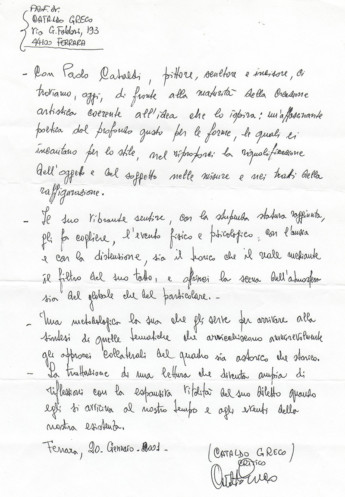 PROF. dr.
CATALDO GRECO
Via G. Fabbri, 193
44100 FERRARA
- Con Paolo Cataldi, pittore, scultore e incisore, ci
troviamo, oggi, di fronte alla maturità della
artistica coerente all'idea che lo ispira: un'affascinante
poetica del profondo gusto per le forme, le quali ci
incantano per lo stile, nel riproporsi la riqualificazione
dell'oggetto e del soggetto nelle misure e nei tratti della
raffigurazione.
- Il suo vibrante sentire, con la stupenda raggiunta,
gli fa cogliere, l'evento fisico e psicologico, con l'ansia
e con la distensione, sia il bianco che il mediante
il filtro del suo tatto, e la scena dell'atmosfera
sia del globale che del particolare. -
- Una metodologia la sua che gli serve per arrivare alla
sintesi di quelle tematiche che
gli approcci collaterali del quadro sia che storico.
- La trattazione di una lettura che diventa ampia di
riflessioni con la espansiva del suo diletto quando
egli si avvicina al nostro tempo e agli eventi della
nostra esistenza.
Ferrara, 20. Gennaio.
(CATALDO GRECO)
CRITICO